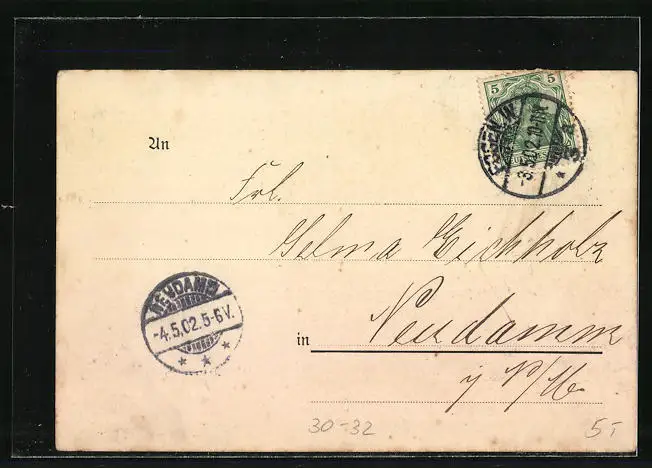 5 5
ESSEN
-3.5.02.
An
Frl.
Selma Eichholz
in Neudamm
NEUDAMM
-4.5.02.5-6V.
30-32
5,-